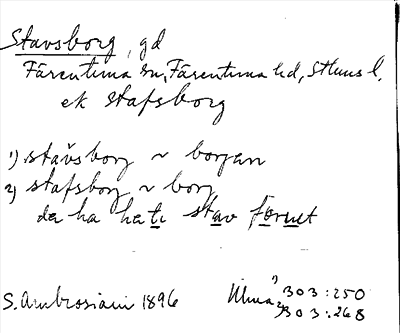 Stavsborg, gd
Färentuna sn, Färentuna hd, Sthms l.
ek stafsborg
1) stavsborg ~ borjan
2) stafsborg ~ borj
da ha hati stav förut
S. Ambrosiani 1896
Ulma 1) 303:250
2) 303:268